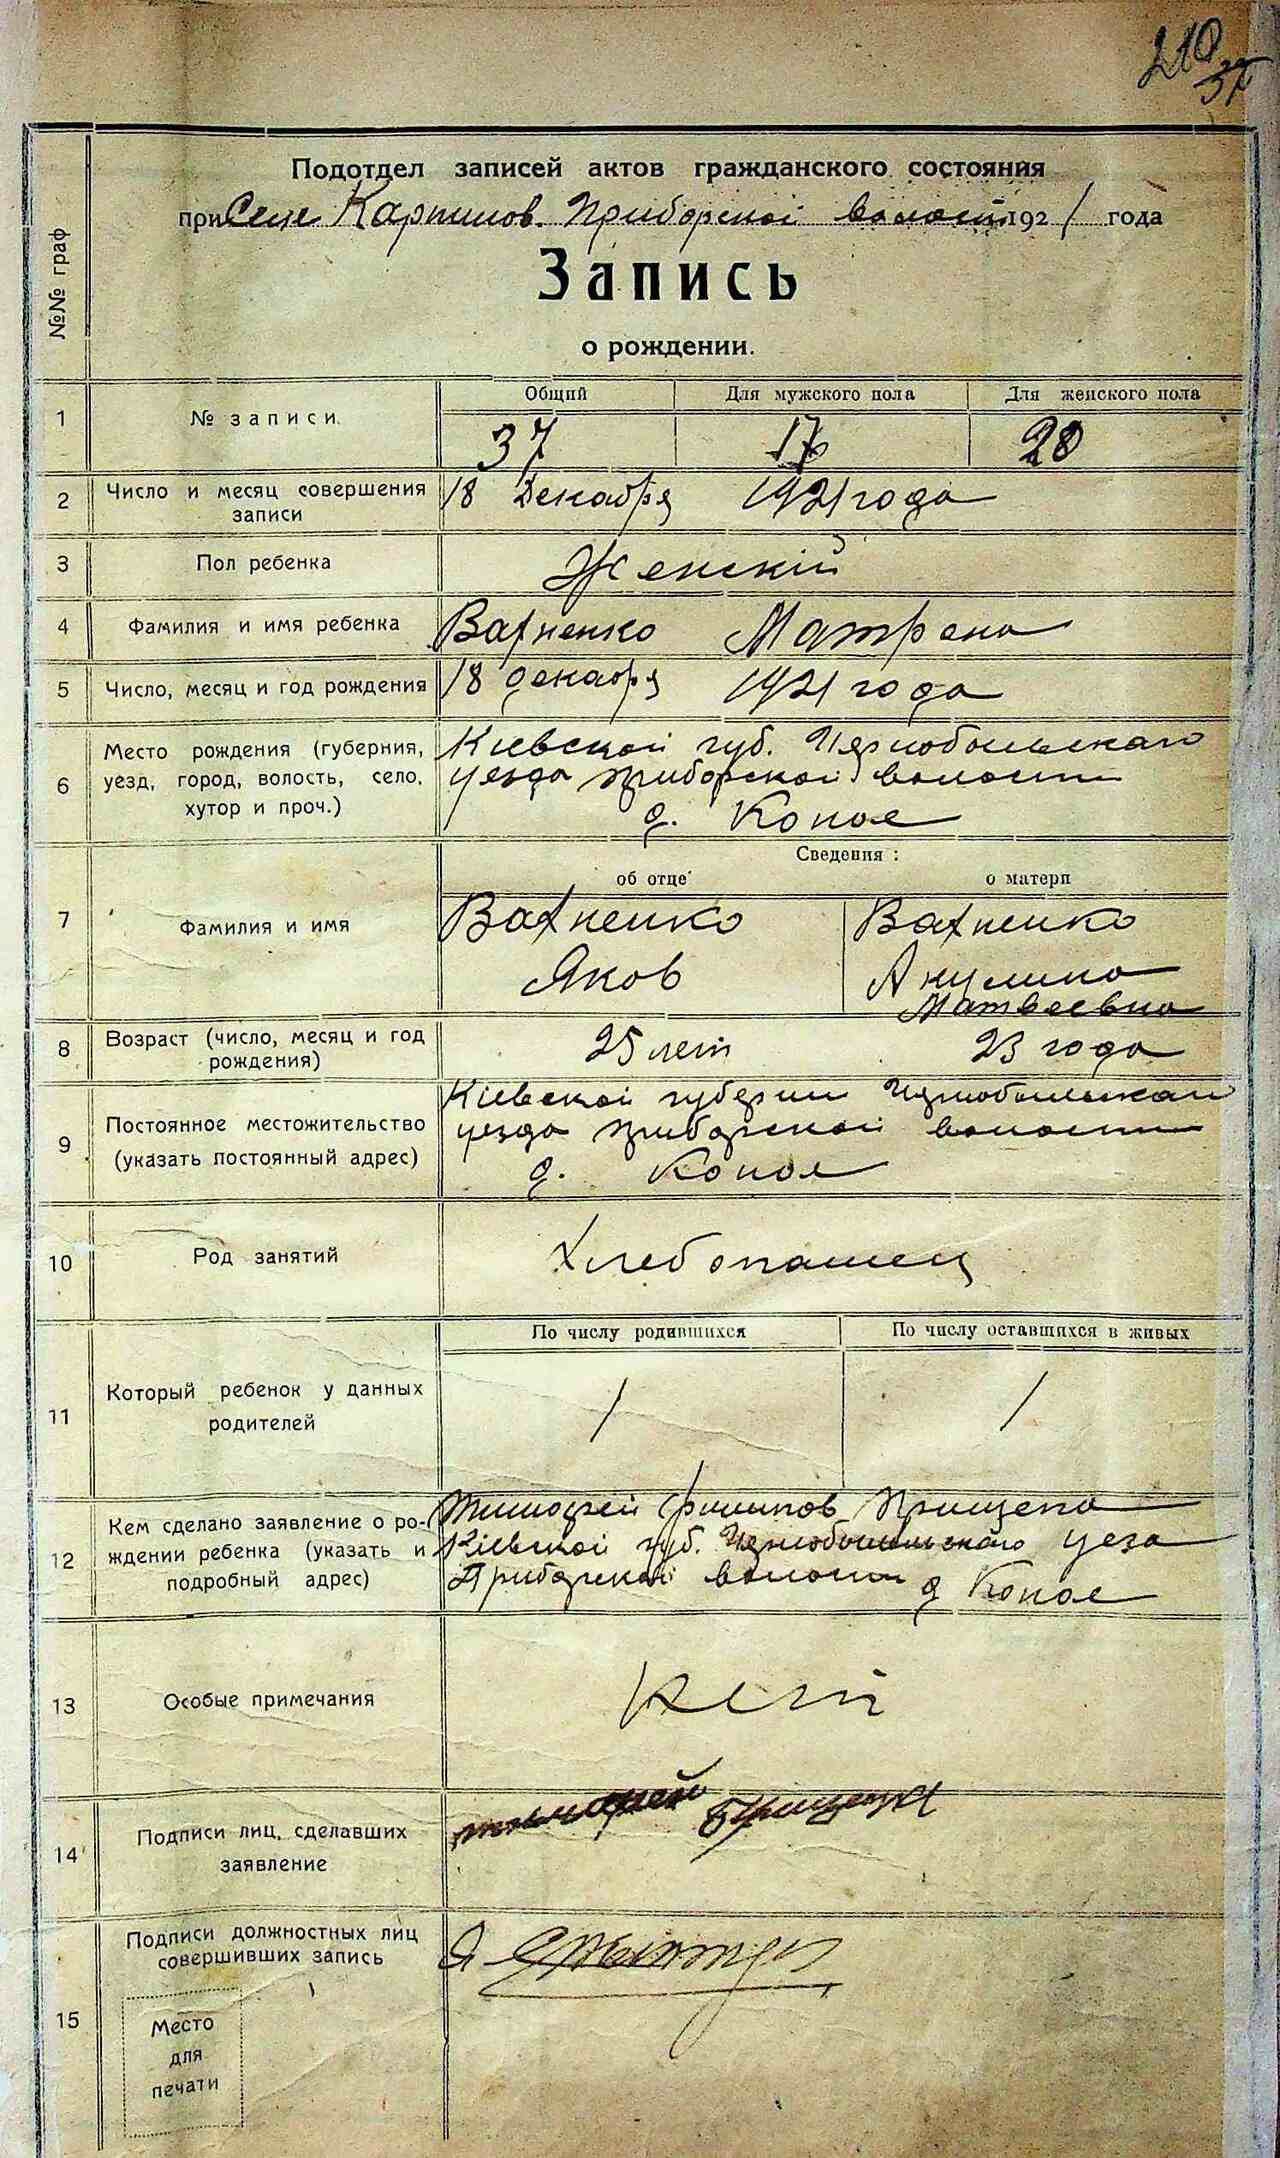 210
37
Подотдел записей актов гражданского состояния
при Селе Карпилов. Приборской волости 1921 года
Запись
о рождении.
№№ граф
Общий Для мужского пола Для женского пола
1 № записи 37 17 20
2 Число и месяц совершения записи 18 Декабря 1921 года
3 Пол ребенка Женскій
4 Фамилия и имя ребенка Вахненко Матрена
5 Число, месяц и год рождения 18 декабря 1921 года
6 Место рождения (губерния, уезд, город, волость, село, хутор и проч.)
Кіевской губ. Чернобыльскаго
уезда Приборской волости
д. Копое
Сведения:
об отце о матери
7 Фамилия и имя
Вахненко Вахненко
Яков Акулина
Матвеевна
8 Возраст (число, месяц и год рождения) 25 лет 23 года
9 Постоянное местожительство (указать постоянный адрес)
Кіевской губерни
уезда Приборской волости
д. Копое
10 Род занятий Хлебопашец
По числу родившихся По числу оставшихся в живых
11 Который ребенок у данных родителей 1 1
12 Кем сделано заявление о рождении ребенка (указать и подробный адрес)
Тимофей Филипов Прищепа
Кіевской губ. Чернобыльскаго уезда
Приборской волости д Копое
13 Особые примечания Нет
14 Подписи лиц, сделавших заявление
тимофей
15 Подписи должностных лиц совершивших запись
Место
для
печати